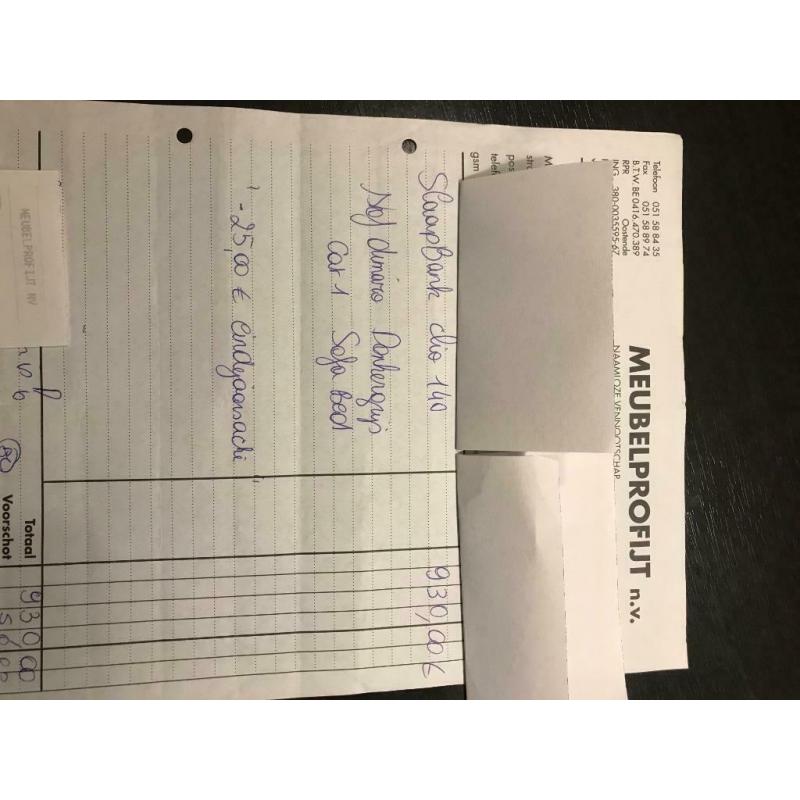 MEUBELPROFIJT n.v.
NAAMLOZE VENNOOTSCHAP
Telefoon 051 58 84 35
Fax 051 58 89 74
B.T.W. BE 0416.470.389
RPR Oostende
ING 380-0035595-67
gsm
Slaapbank clio 140 930,00 €
Stof dinaro Donkergrijs
Cat 1 Sofa Bed
"-25,00 € eindejaarsactie"
MEUBELPROFIJT NV
Totaal 930,00
Voorschot